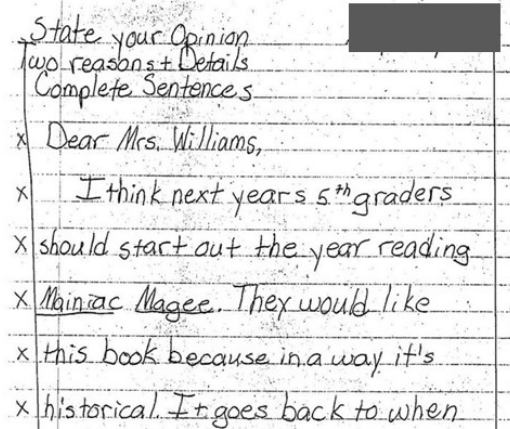 State your Opinion
Two reasons + Details
Complete Sentences
x Dear Mrs. Williams,
x I think next years 5th graders
x should start out the year reading
x Mainiac Magee. They would like
x this book because in a way it's
x historical. It goes back to when